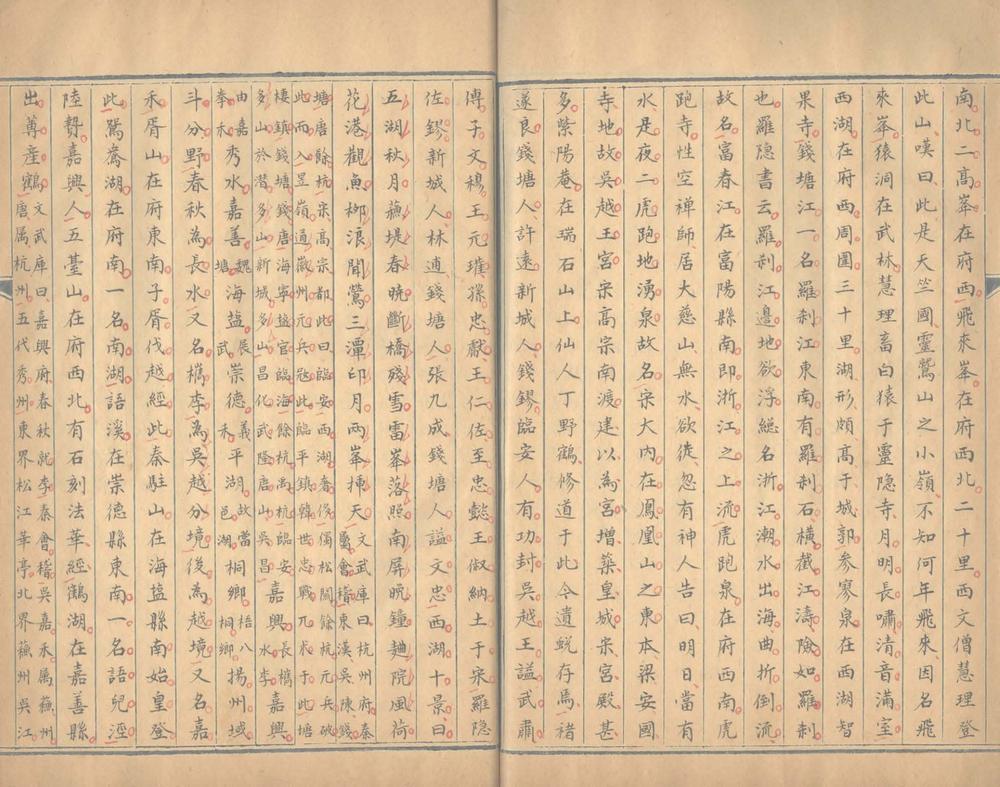 南北二髙峯在府西飛來峯在府西北二十里西文僧慧理登
此山嘆曰此是天竺國靈鷲山之小嶺不知何年飛來因名飛
來峯猿洞在武林慧理畜白猿于靈隐寺月明長嘯清音滿室
西湖在府西周圍三十里湖形頗髙于城郭參寥泉在西湖智
果寺錢塘江一名羅刹江東南有羅刹石橫截江濤險如羅刹
也羅隐書云羅刹江邉地欲浮緫名浙江潮水出海曲折倒流
故名富春江在富陽縣南即浙江之上流虎跑泉在府西南虎
跑寺性空禅師居大慈山無水欲徙忽有神人告曰明日當有
水是夜二虎跑地湧泉故名宋大内在鳳凰山之東本梁安國
寺地故吳越王宮宋髙宗南渡建以為宮增築皇城宋宮殿甚
多紫陽菴在瑞石山上仙人丁野鶴修道于此今遺蜕存焉褚
遂良錢塘人許逺新城人錢鏐臨安人有功封吳越王諡武肅
傅子文穆王元瓘孫忠獻王仁佐至忠懿王俶納土于宋羅隐
佐鏐新城人林逋錢塘人張九成錢塘人謚文忠西湖十景曰
五湖秋月蘓堤春暁斷橋殘雪雷峯落照南屏晩鐘麯院風荷
花港觀魚栁浪聞鶯三潭印月兩峯揷天文武庫曰杭州府秦
屬會稽東漢吳陳錢
塘唐餘杭宋髙宗都此曰臨安西湖奢侈獨松關餘杭元兵破
此而入昱嶺通徽州元兵冦此臨平鎮韓世忠戰兀术于此塘
棲鎮錢塘錢唐海寧塩官臨海餘杭禹杭臨安
多山於潜多山新城多山昌化武隆唐山吳昌嘉興長水檇李嘉興
由拳嘉禾秀水嘉善魏塘海塩武辰崇德義禾平湖故邑當湖桐鄉梧桐八鄉揚州域
斗分野春秋為長水又名檇李為吳越分境後為越境又名嘉
禾胥山在府東南子胥伐越經此秦駐山在海塩縣南始皇登
此鴛鴦湖在府南一名南湖語溪在崇德縣東南一名語兒涇
陸贄嘉興人五臺山在府西北有石刻法華經鶴湖在嘉善縣
出蓴產鶴文武庫曰嘉興府春秋就李秦會稽吳嘉禾属蘓州
唐属杭州五代秀州東界松江華亭北界蘓州吳江